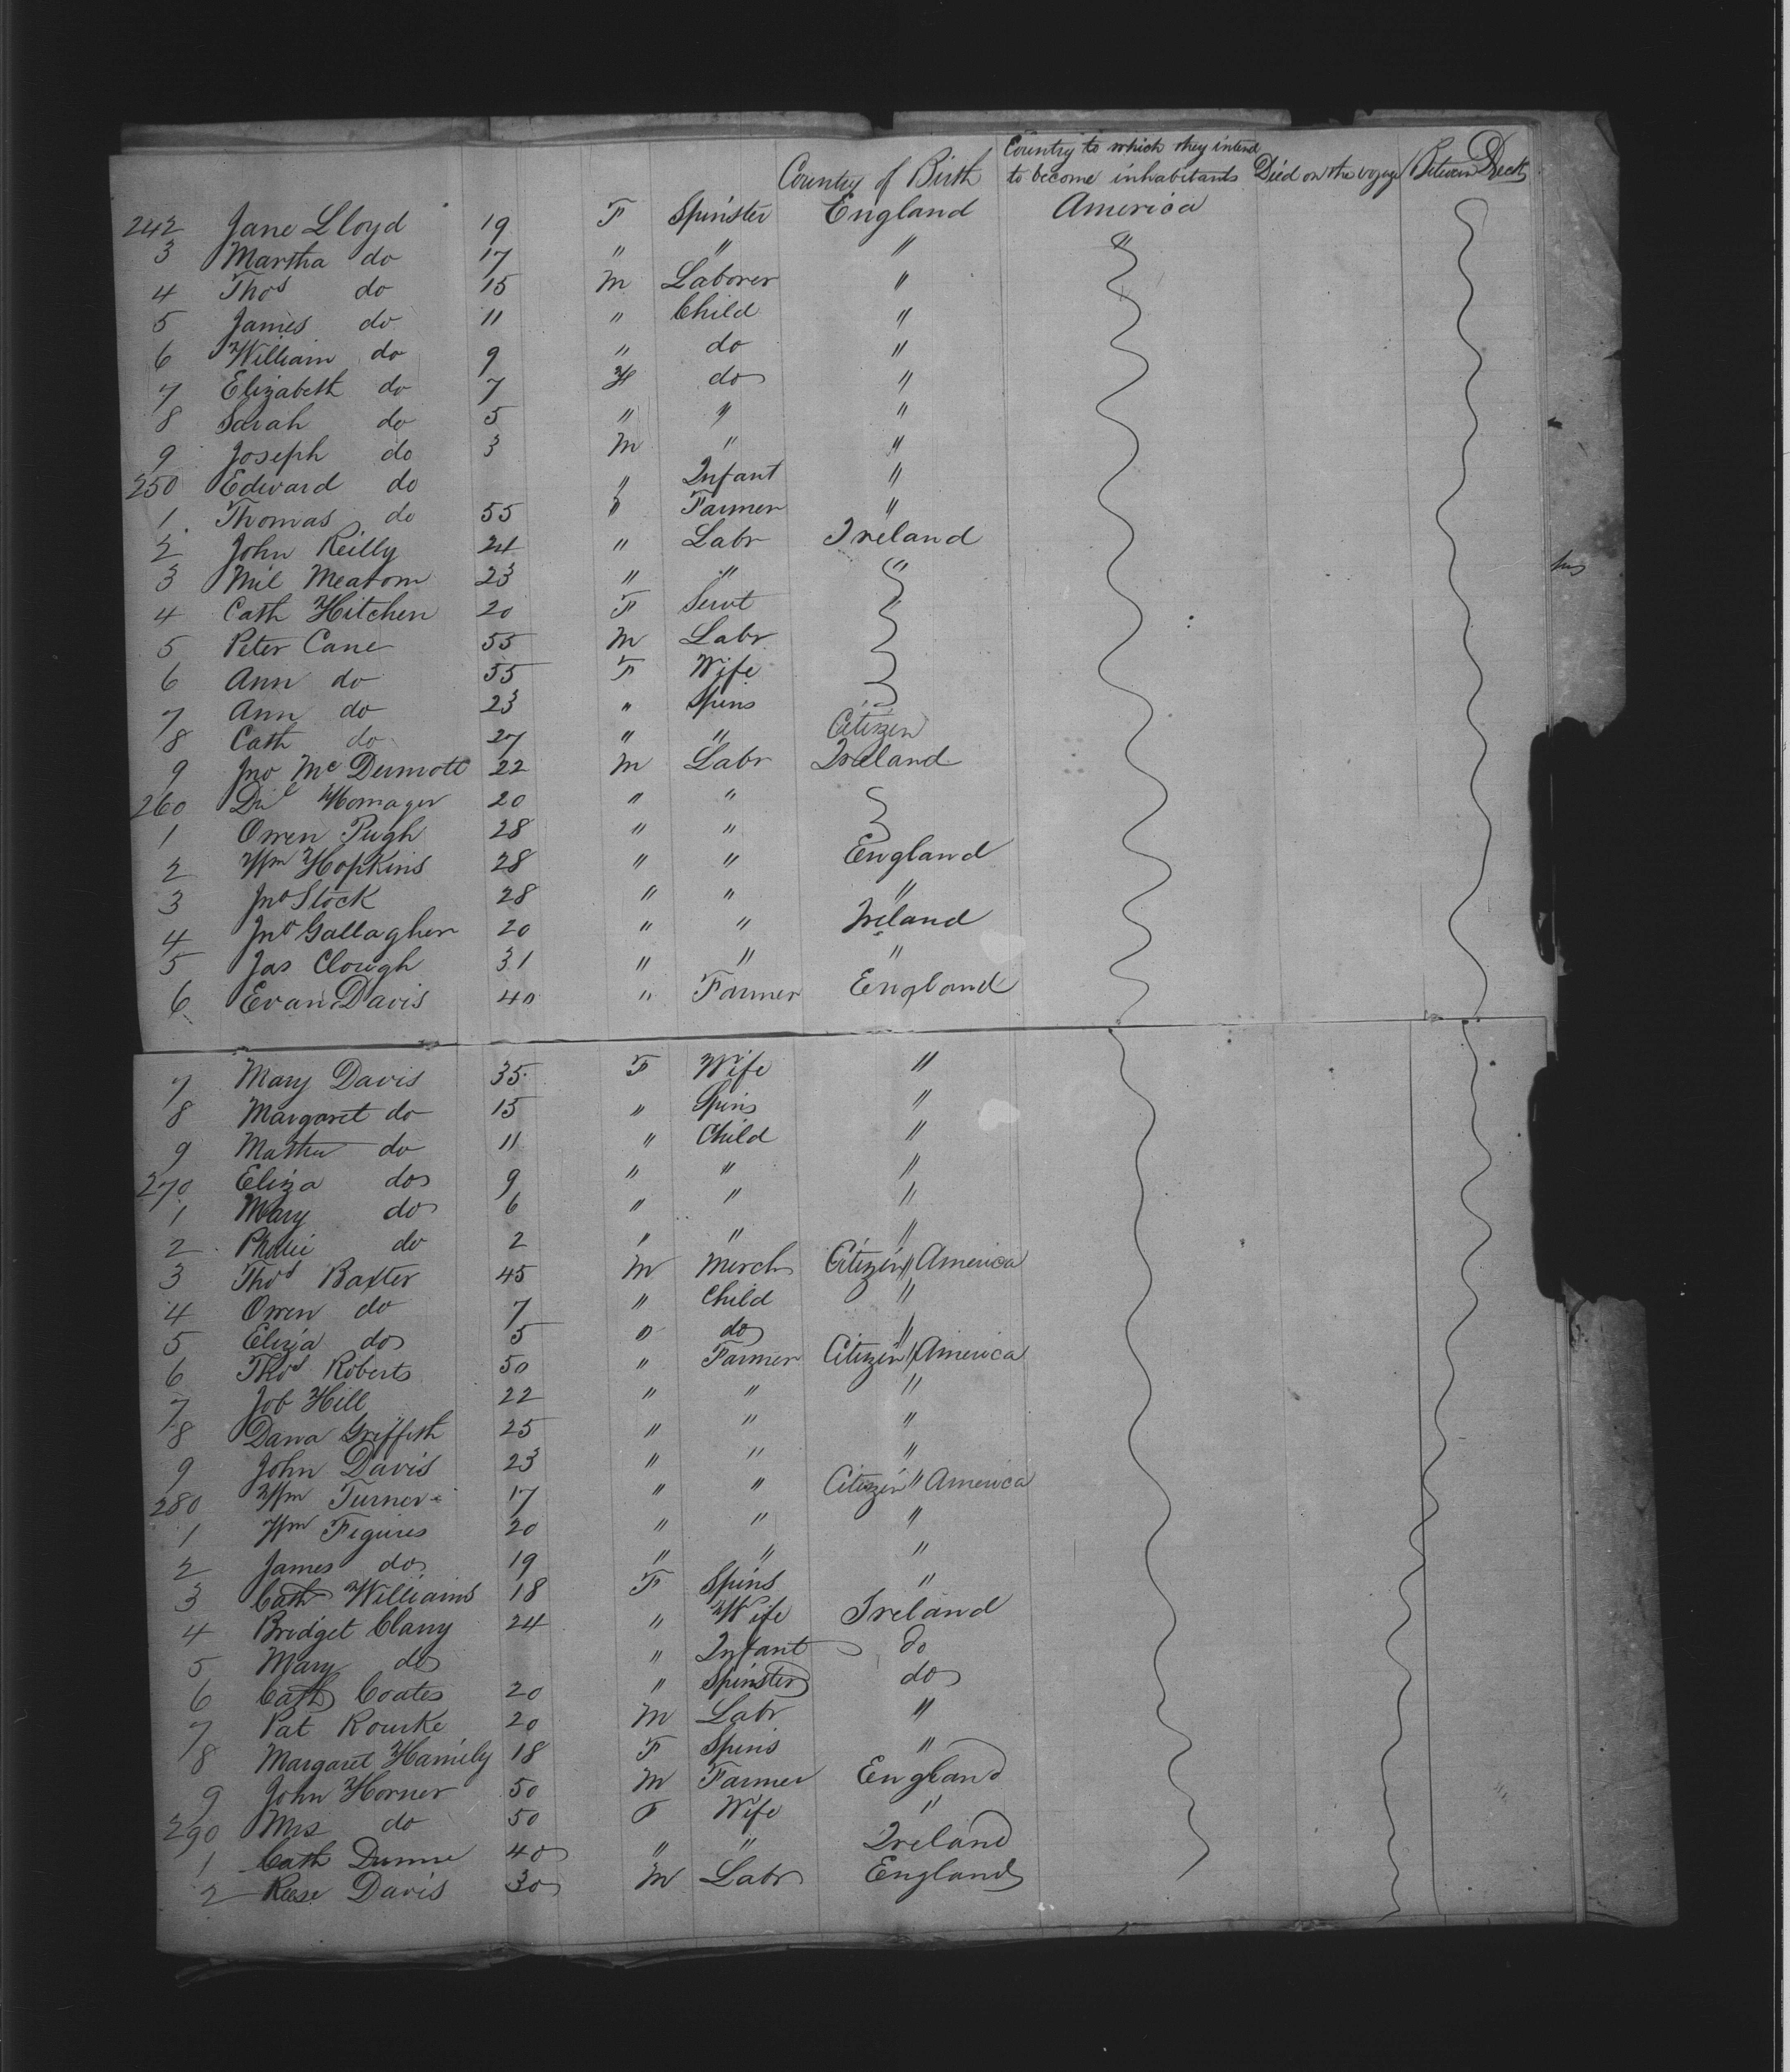 Country of Birth Country to which they intend to become inhabitants Died on the voyage Between Deck
242 Jane Lloyd 19 F Spinster England America
3 Martha do 17 " " " "
4 Thos do 15 M Laborer "
5 James do 11 " Child "
6 William do 9 " do "
7 Elizabeth do 7 F do "
8 Sarah do 5 " " "
9 Joseph do 3 M " "
250 Edward do " Infant "
1 Thomas do 55 " Farmer "
2 John Reilly 24 " Labr Ireland
3 Mil 23 " " "
4 Cath Hitchen 20 F Servt
5 Peter Cane 55 M Labr
6 Ann do 55 F Wife
7 Ann do 23 " Spins
8 Cath do 27 " " Citizen
9 Jno McDermott 22 M Labr Ireland
260 20 " "
1 Owen Pugh 28 " "
2 Wm Hopkins 28 " " England
3 Jno Stock 28 " " "
4 Jno Gallagher 20 " " Ireland
5 Jas Clough 31 " " "
6 Evan Davis 40 " Farmer England
7 Mary Davis 35 F Wife "
8 Margaret do 15 " Spins "
9 do 11 " Child "
270 Eliza do 9 " " "
1 Mary do 6 " " "
2 do 2 " " "
3 Thos Baxter 45 M Merch Citizen " America
4 Owen do 7 " Child "
5 Eliza do 5 " do "
6 Thos Roberts 50 " Farmer Citizen " America
7 Job Hill 22 " " "
8 Griffith 25 " " "
9 John Davis 23 " " "
280 Wm Turner 17 " " Citizen " America
1 Wm Figures 20 " " "
2 James do 19 " " "
3 Cath Williams 18 F Spins "
4 Bridget Clany 24 " Wife Ireland
5 Mary do " Infant do
6 Cath Coates 20 " Spinster do
7 Pat Rourke 20 M Labr "
8 Margaret 18 F Spins "
9 John Horner 50 M Farmer England
290 Mrs do 50 F Wife "
1 Cath Dunne 40 " " Ireland
2 Reese Davis 30 M Labr England